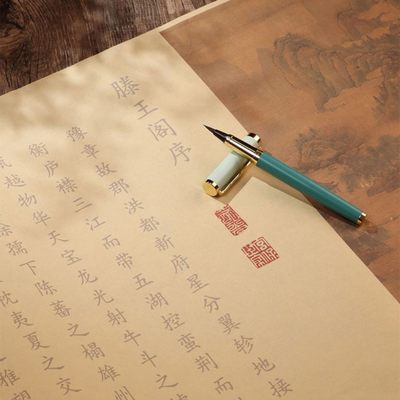 滕王阁序
豫章故郡洪都新府星分翼轸地接
衡庐襟三江而带五湖控蛮荆而
越物华天宝龙光射牛斗之
孺下陈蕃之榻雄州
枕夷夏之交
雅望